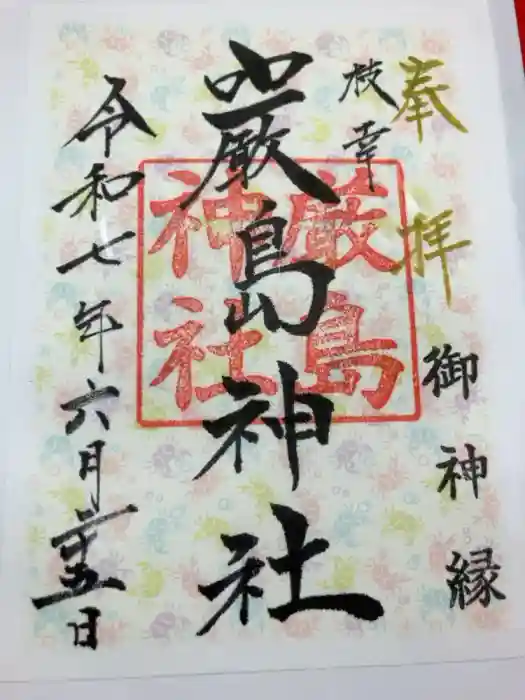 奉拝
御神縁
枝幸
厳島神社
厳島
神社
令和七年六月廿五日